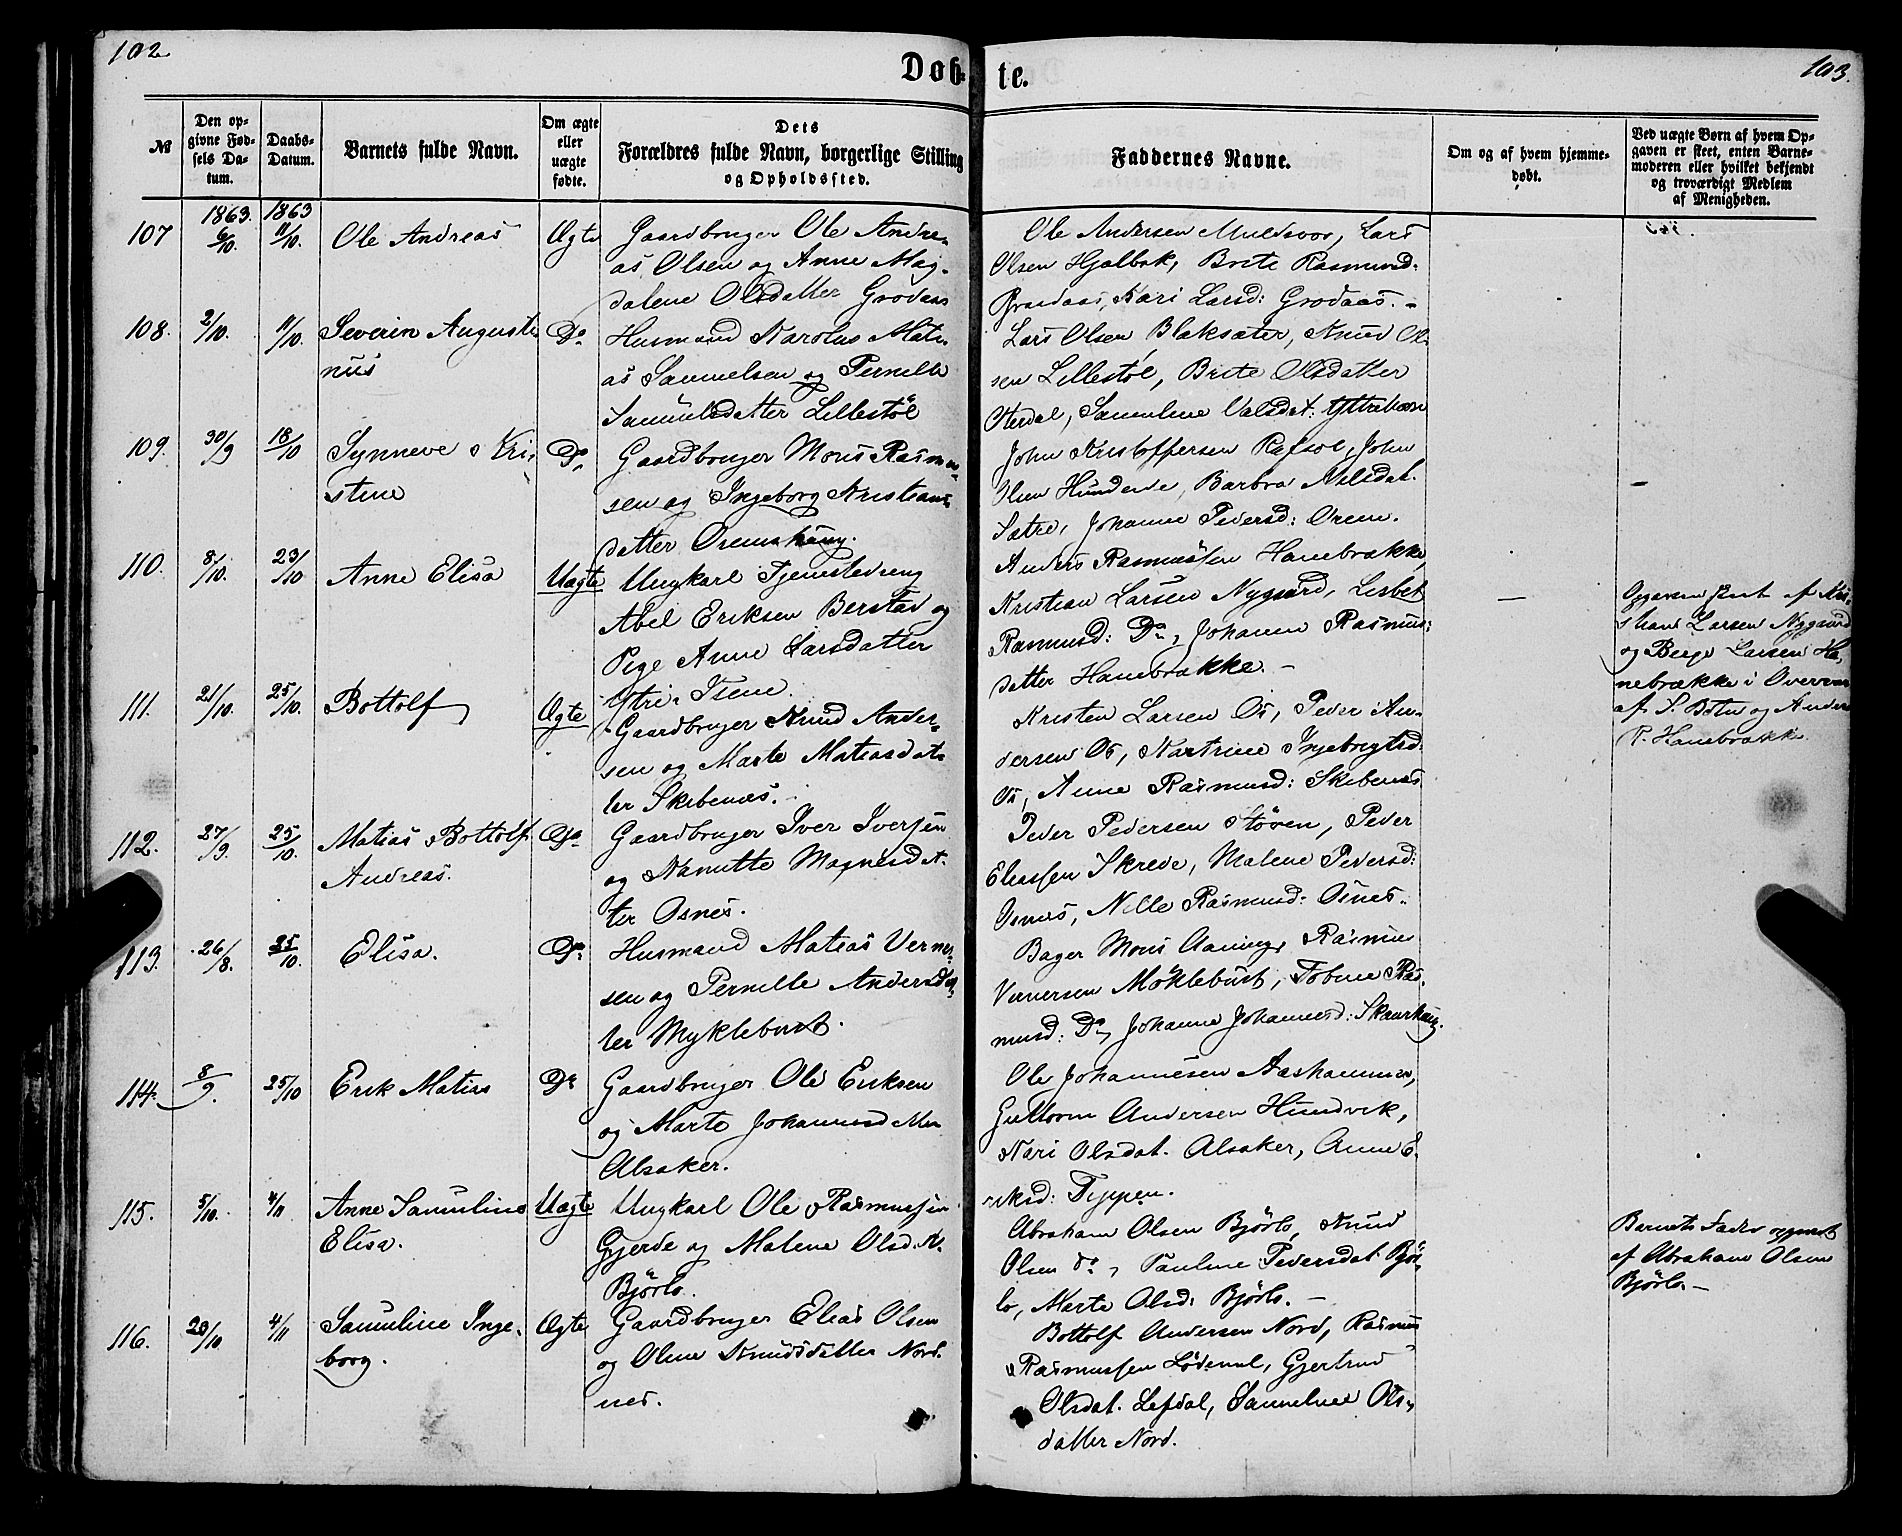 102.
103.
Døb-
te.
№
Den op-
givne Fød-
sels Da-
tum.
Daabs-
Datum.
Barnets fulde Navn.
Om ægte
eller
uægte
fødte.
Dets
Forældres fulde Navn, borgerlige Stilling
og Opholdssted.
Faddernes Navne.
Om og af hvem hjemme-
døbt.
Ved uægte Børn af hvem Op-
gaven er skeet, enten Barne-
moderen eller hvilket bekjendt
og troværdigt Medlem
af Menigheden.
1863. 1863
107 6/10. 11/10. Ole Andreas Ægte Gaardbruger Ole Andre-
as Olsen og Anne Mag-
dalene Olsdatter Grodaas
Ole Andersen Muldsvor, Lars
Olsen Hjelbak, Brite Rasmusd:
Grodaas, Kari Larsd: Grodaas. -
108. 2/10. 11/10. Severin Augusti- Do Husmand Karolus Mati-
nus
as Samuelsen og Pernille
Samuelsdatter Lillestöl
Lars Olsen Blaksæter, Knud Ol-
sen Lillestöl, Brite Olsdatter
Otterdal, Samuline Valsdat.
109. 30/9 18/10 Synneve Kri- Do Gaardbruger Mons Rasmus-
stine
sen og Ingeborg Kristians-
datter Oremshaug.
John Kristoffersen Rafsol, John
Olsen Hundeide, Barbra Nilsdat.
Sætre, Johanne Pedersd: Orem.
110. 8/10. 23/10 Anne Elisa Uægte Ungkarl Tjenestedreng
Abel Eriksen Berstad og
Pige Anne Larsdatter
Ytri- Tsene.
Anders Rasmussen Hanebrække,
Kristian Larsen Nygard, Lisbet
Rasmusd: Do, Johanne Rasmus-
datter Hanebrække. -
Opgaven skeet af Kri-
stian Larsen Nygaard
og Berge Larsen Ha-
nebrække i Overvær
af S. Bøtn og Anders
R. Hanebrække
111. 21/10. 25/10. Bottolf Ægte Gaardbruger Knud Ander-
sen og Marte Matiasdat-
ter Skibenæs.
Kristen Larsen Os, Peder An-
dersen Os, Kartrine Ingebrigtsd:
Os, Anne Rasmusd: Skibenæs
112. 27/9. 25/10. Matias Bottolf Do Gaardbruger Iver Iversen
Andreas.
og Nanutte Magnesdat-
ter Osnes.
Peder Pedersen Støven, Peder
Eliassen Skrede, Malene Pedersd:
Osnæs, Nille Rasmusd: Osnes.
113. 26/8. 25/10. Elisa. Do Husmand Matias Verner-
sen og Pernille Andersdat-
ter Myklebust.
Bager Mons Aaning, Rasmus
Vernersen Möklebust, Tobine Ras-
musd: Do, Johanne Johannesd: Skaarhaug.
114. 8/9. 25/10 Erik Matias Do Gaardbruger Ole Eriksen
og Marte Johannesdatter
Alsaker.
Ole Johannesen Aashammer,
Guttorm Andersen Hundvik,
Kari Olsdat. Alsaker, Anne E-
riksd: Tippen.
115. 5/10. 4/11 Anne Samuline Uægte Ungkarl Ole Rasmussen
Elisa.
Gjerde og Malene Olsdat.
Bjørlo.
Abraham Olsen Bjørlo, Knud
Olsen do, Pauline Pedersdat. Bjør-
lo, Merte Olsd: Bjørlo. -
Barnets Fader opgivet
af Abraham Olsen
Bjørlo. -
116. 20/10 4/11 Samuline Inge- Ægte Gaardbruger Elias Olsen
borg.
og Oline Knudsdatter Nord-
nes.
Bottolf Andersen Nord, Rasmus
Rasmussen Lødemel, Gjertrud
Olsdat. Lefdal, Samueline Ols-
datter Nord.